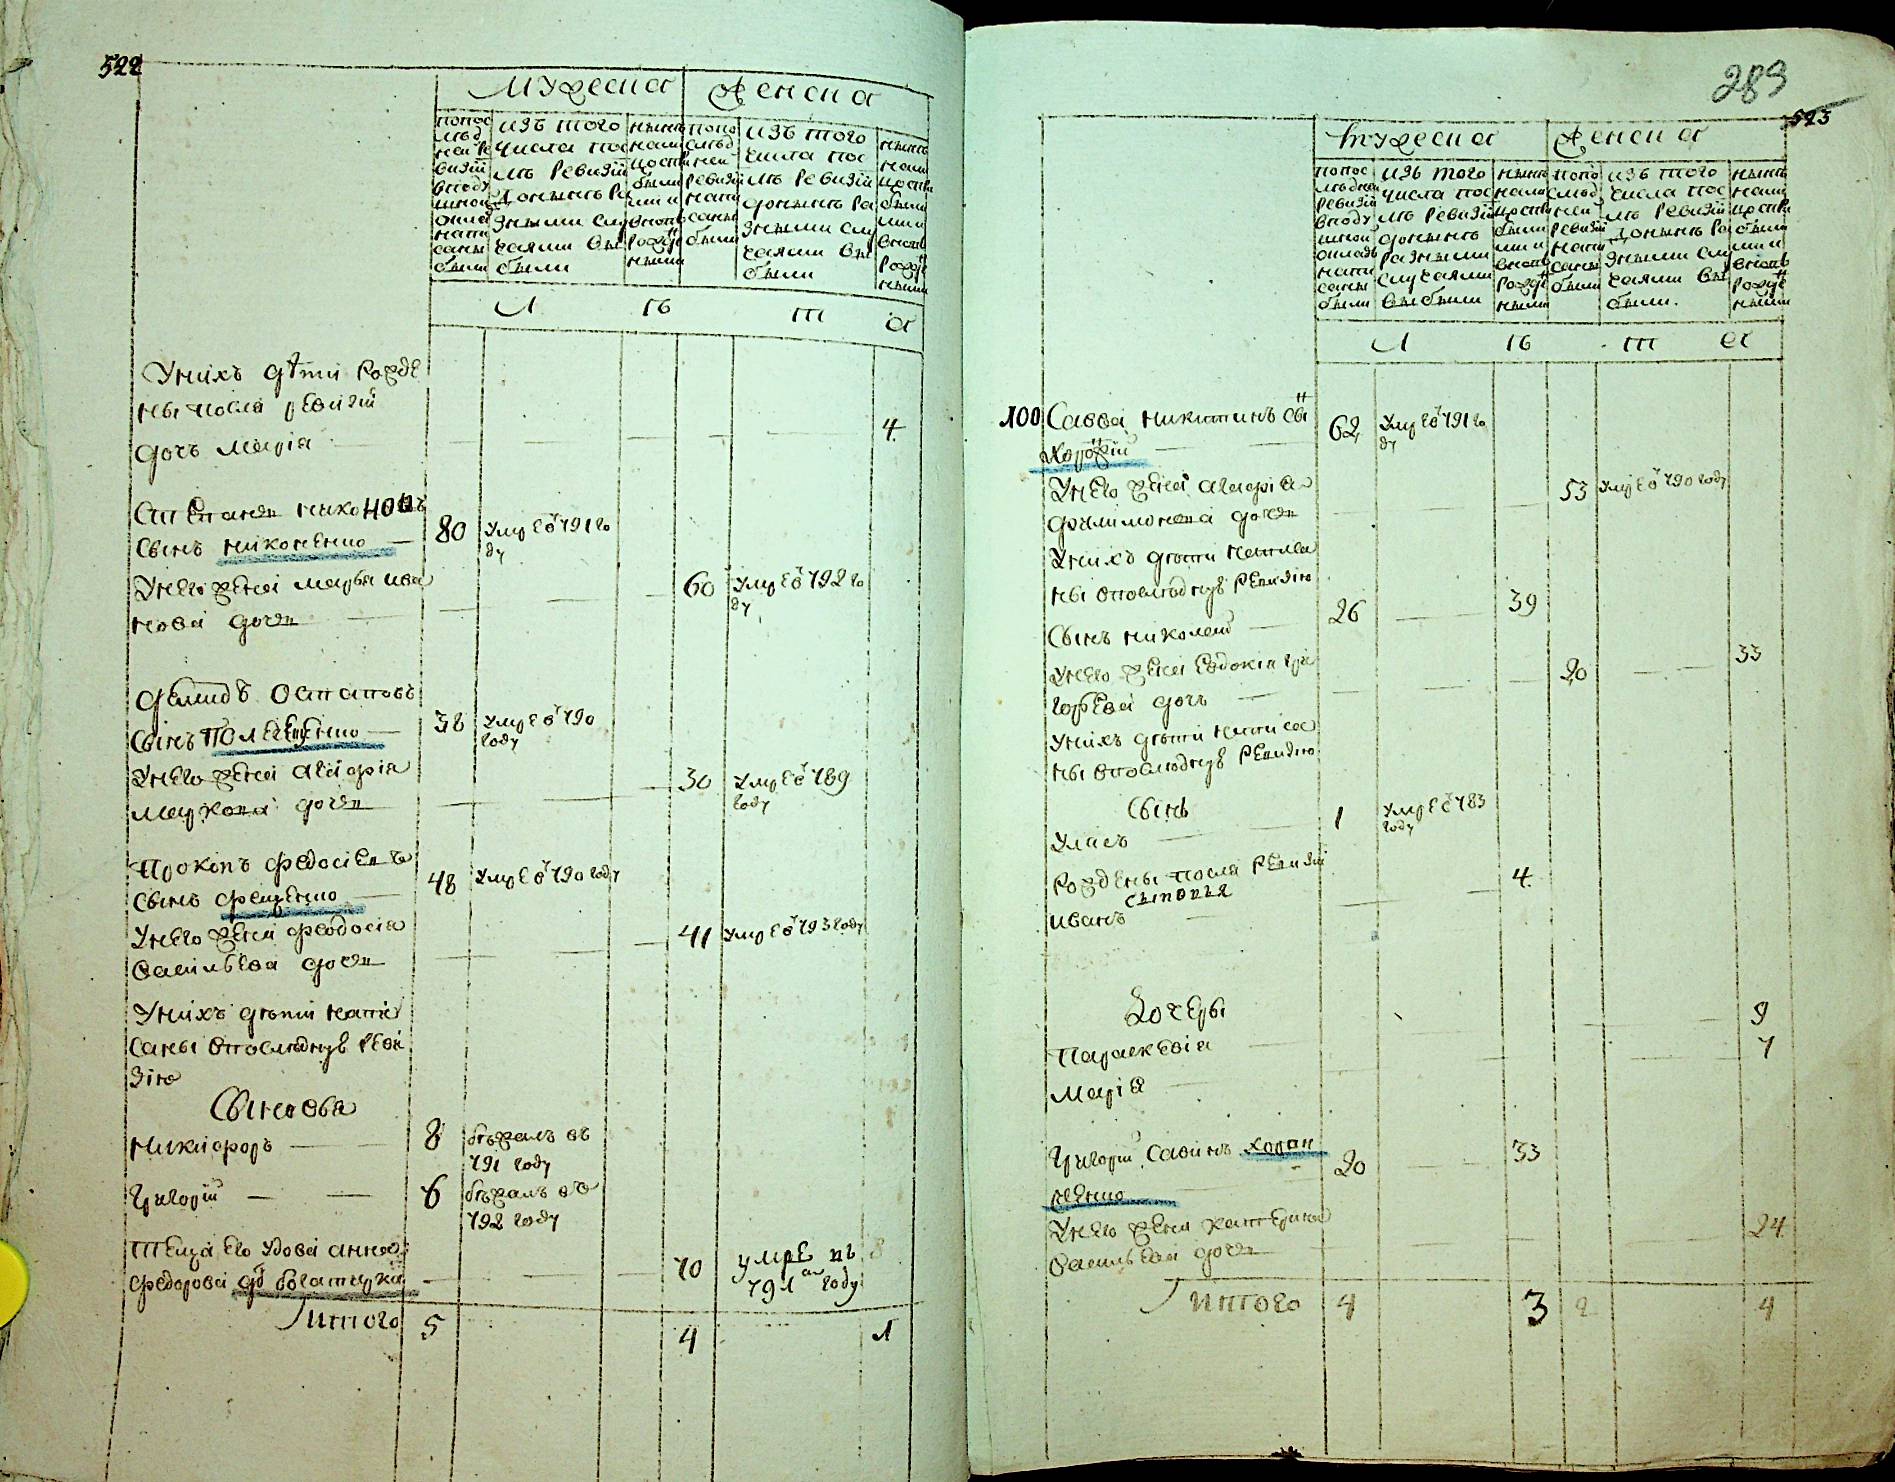 522
Мужеска Женска
попос леде ней ре визїи вподу шной окла напи саны были
изъ того числа пос лѣ ревизїи донынѣ ра зными слу чаями вы были
нынѣ нали цо сти были ми и вновь рожде нными
попо след ней ревизїи напи саны были
изъ того числа пос лѣ ревизїи донынѣ ра зными слу чаями вы были
нынѣ нали цости были ми и вновь рожде нными
Л ѣ т а
Унихъ дѣти рожде
ны после ревизїи
дочь Марїя 4
Степанъ Никоновъ
сынъ Никоненко 80 умре в 791 го
ду
Унего жена Марья Ива
нова дочь 60 умре в 792 го
ду
Демидъ Остаповъ
сынъ Полещенко 38 умре в 790
году
Унего жена Агафїя
Маркова дочь 30 умре в 789
году
Прокопъ Федосїевъ
сынъ Фещенко 48 умре в 790 году
Унего жена Феодосїя
Васильева дочь 41 умре в 793 году
Унихъ дѣти напи
саны впоследнүю реви
зїю
Сыновья
Никифоръ 8 бѣжалъ въ
791 году
Григорїй 6 бѣжалъ въ
792 году
Теща его удова Анна
Федорова 70 умре въ
791 году
Итого 5 4 1
289
523
Мужеска Женска
попос лѣдней ревизїи вподу шной окладъ напи саны были
изъ того числа пос лѣ ревизїи донынѣ разными случаями выбыли
нынѣ нали цости были ми и вновь рожде нными
попо слѣд ней ревизїи напи саны были
изъ того числа пос лѣ ревизїи донынѣ ра зными слу чаями вы были.
нынѣ нали цости были ми и вновь рожде нными
Л ѣ т а
100 Савва Никитинъ сы
62 умре в 791 го
ду
Унего жена Агафїя
Филимонова дочь 53 умре в 790 году
Унихъ дѣти написа
ны впоследнюю ревизїю
Сынъ Николай 26 39
Унего жена Евдокїя Гри
горьева дочь 20 33
Унихъ дѣти написа
ны впоследнюю ревизїю
Сынъ
Уласъ 1 умре в 783
году
Рождены после ревизїи
сыновья
Иванъ 4
Дочеры
Параскевїя 9
Марїя 7
Григорїй Савинъ 20 33
Унего жена Катерина
Васильева дочь 24
Итого 4 3 2 4